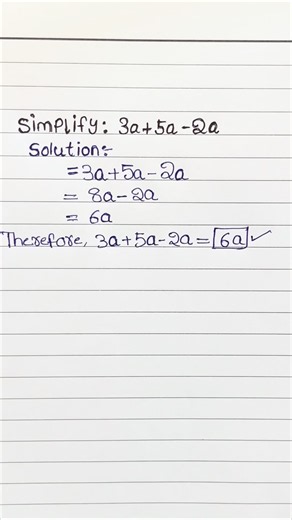 Simplify: 3a+5a-2a
Solution:-
=3a+5a-2a
= 8a-2a
= 6a
Therefore, 3a+5a-2a= 6a ✓